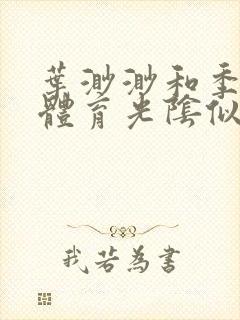 葉渺渺和季
體育光陰似
我若為書